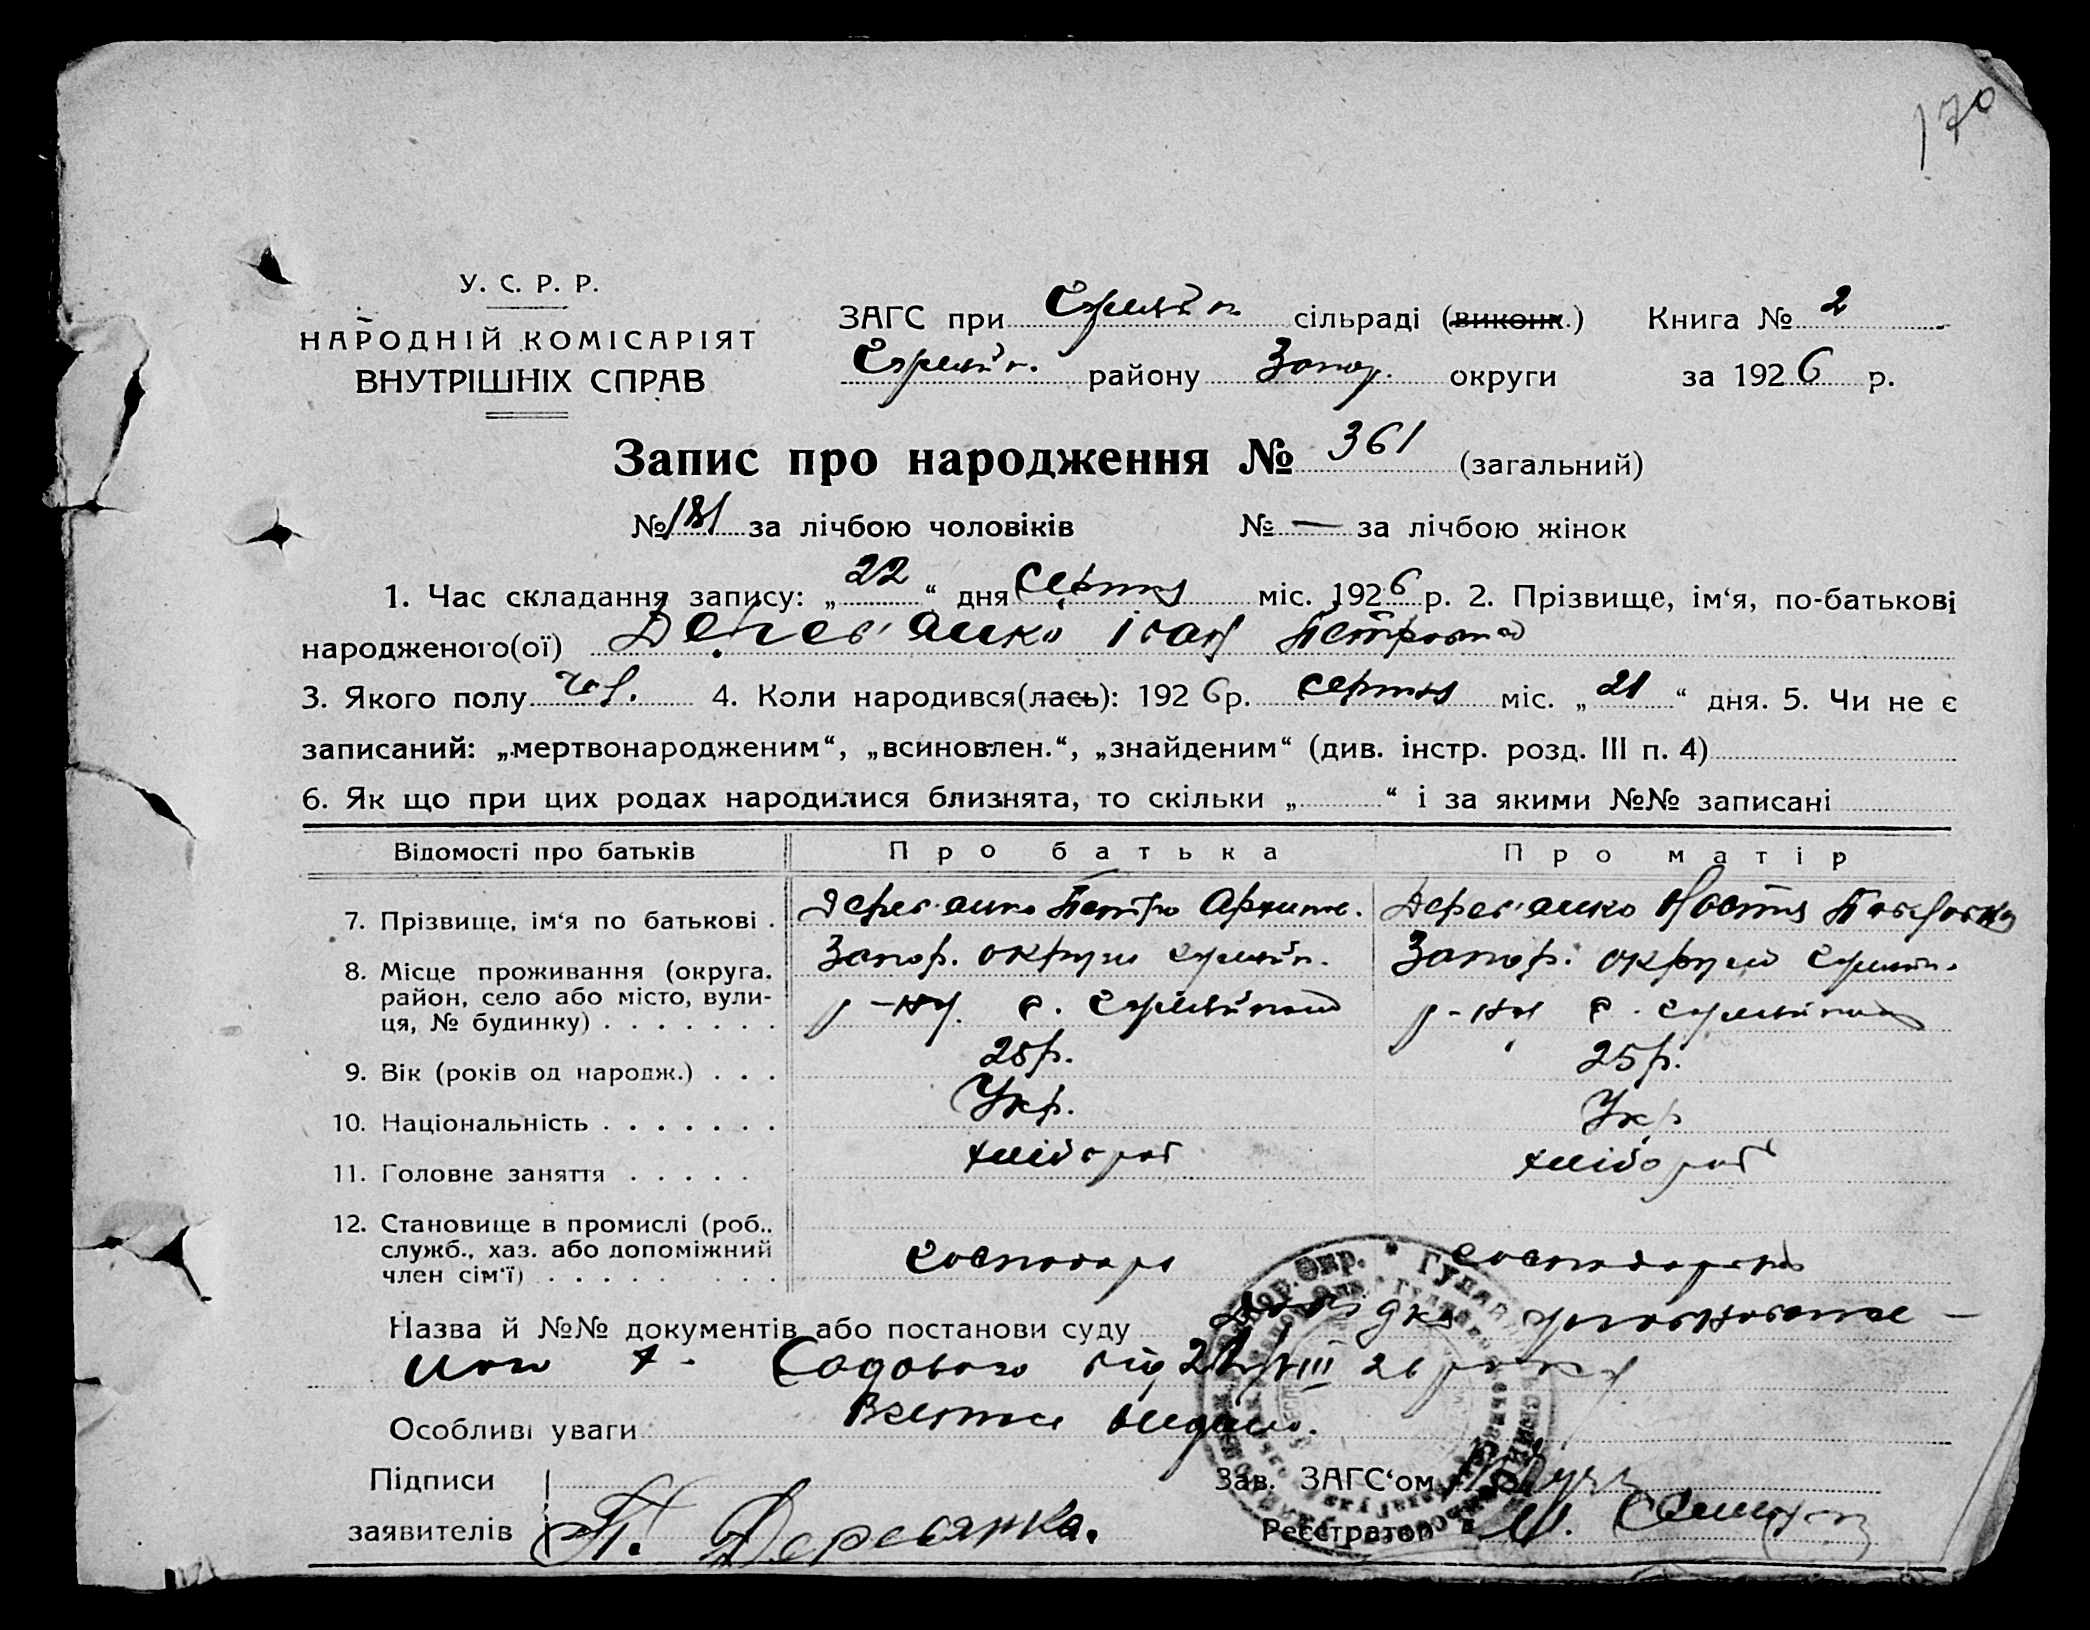 170
У. С. Р. Р.
НАРОДНІЙ КОМІСАРІЯТ
ВНУТРІШНІХ СПРАВ
ЗАГС при сільраді (виконк.) Книга № 2
району Запор. округи за 1926 р.
Запис про народження № 361 (загальний)
№ 181 за лічбою чоловіків № — за лічбою жінок
1. Час складання запису: „22“ дня серпня міс. 1926 р. 2. Прізвище, ім‘я, по-батькові
народженого(ої) Дерев'янко Іван Петрович
3. Якого полу чол. 4. Коли народився(лась): 1926 р. серпня міс. „21“ дня. 5. Чи не є
записаний: „мертвонародженим“, „всиновлен.“, „знайденим“ (див. інстр. розд. III п. 4)
6. Як що при цих родах народилися близнята, то скільки „ “ і за якими №№ записані
Відомості про батьків Про батька Про матір
7. Прізвище, ім‘я по батькові . Дерев'янко Петро Дерев'янко Настя
8. Місце проживання (округа, район, село або місто, вулиця, № будинку) . . . . . . .
Запор. округи
р-ну с.
Запор. округи
р-ну с.
9. Вік (років од народж.) . . . 25р. 25р.
10. Національність . . . . . . . Укр. Укр
11. Головне заняття . . . . . хлібороб хлібороб
12. Становище в промислі (роб., служб., хаз. або допоміжний член сім‘ї) . . . . . . . .
господарь господарка
Назва й №№ документів або постанови суду Довідка уповноважено-
го Садового від VIII 26 року
Особливі уваги
Підписи
заявителів П. Деревянко.
Зав. ЗАГС‘ом
Реєстратор М.